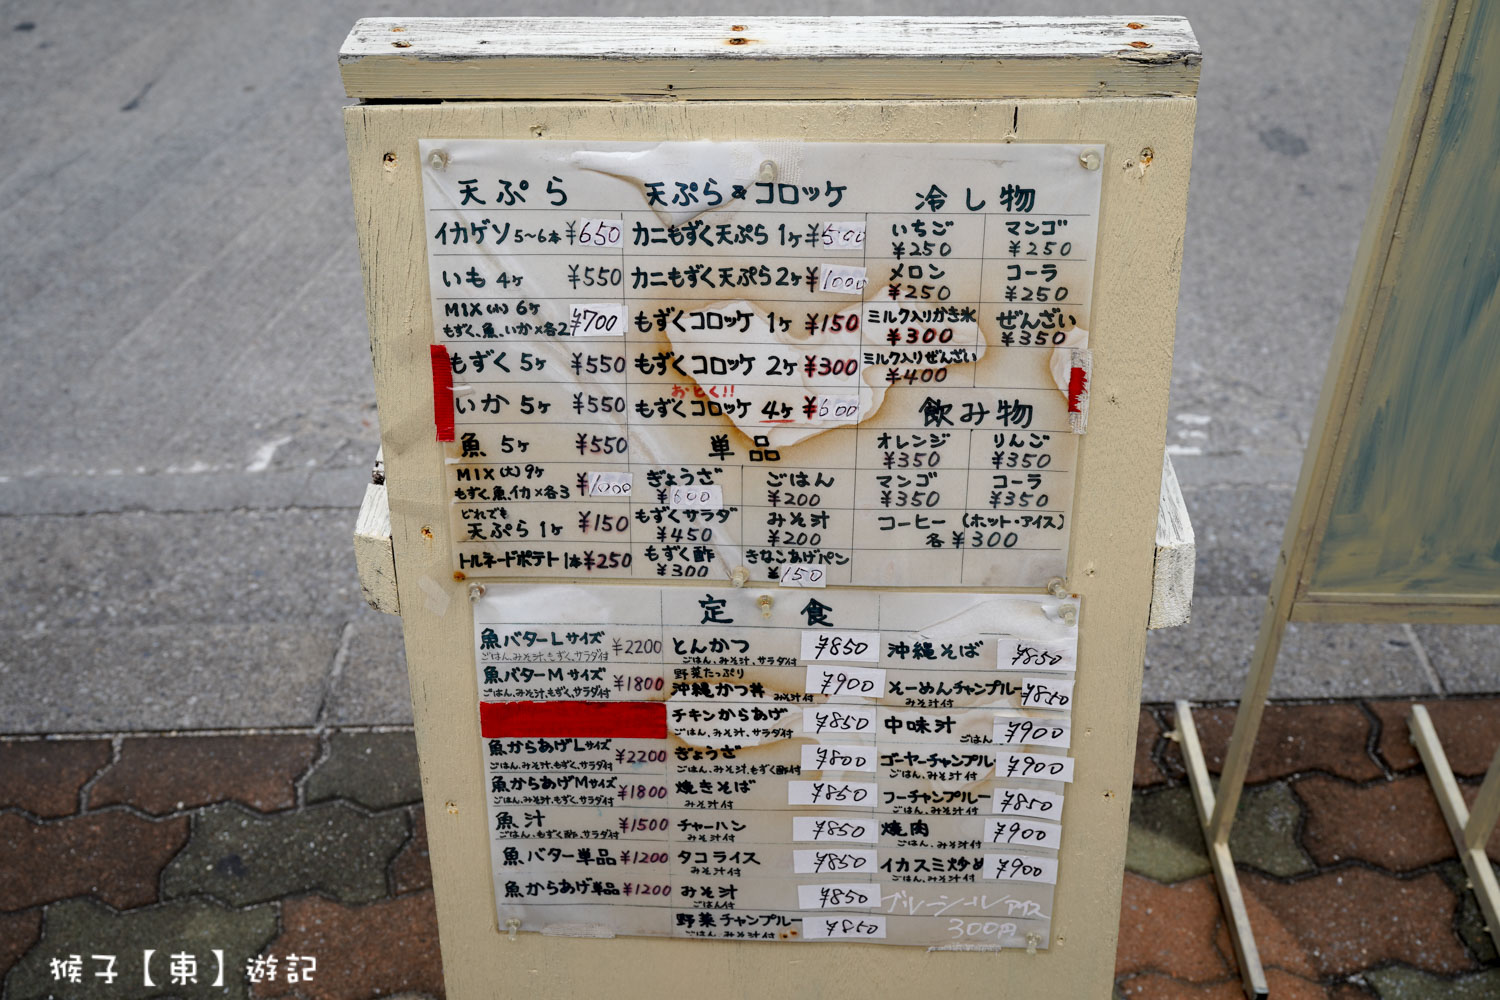 天ぷら
イカゲソ 5〜6本 ¥650
いも 4ヶ ¥550
MIX(小) 6ヶ ¥700
もずく、魚、いか×各2
もずく 5ヶ ¥550
いか 5ヶ ¥550
魚 5ヶ ¥550
MIX(大) 9ヶ ¥1000
もずく、魚、イカ×各3
どれでも
天ぷら 1ヶ ¥150
トルネードポテト 1本 ¥250
天ぷら&コロッケ
カニもずく天ぷら 1ヶ ¥500
カニもずく天ぷら 2ヶ ¥1000
もずくコロッケ 1ヶ ¥150
もずくコロッケ 2ヶ ¥300
おとく!!
もずくコロッケ 4ヶ ¥600
単品
ぎょうざ ¥600
ごはん ¥200
もずくサラダ ¥450
みそ汁 ¥200
もずく酢 ¥300
きなこあげパン ¥150
冷し物
いちご ¥250
マンゴ ¥250
メロン ¥250
コーラ ¥250
ミルク入りかき氷 ¥300
ぜんざい ¥350
ミルク入りぜんざい ¥400
飲み物
オレンジ ¥350
りんご ¥350
マンゴ ¥350
コーラ ¥350
コーヒー (ホット・アイス)
各¥300
定食
魚バターLサイズ ¥2200
ごはん、みそ汁、もずく、サラダ付
魚バターMサイズ ¥1800
ごはん、みそ汁、もずく、サラダ付
魚からあげLサイズ ¥2200
ごはん、みそ汁、もずく、サラダ付
魚からあげMサイズ ¥1800
ごはん、みそ汁、もずく、サラダ付
魚汁 ¥1500
ごはん、もずく酢、サラダ付
魚バター単品 ¥1200
魚からあげ単品 ¥1200
とんかつ ¥850
ごはん、みそ汁、サラダ付
野菜たっぷり
沖縄かつ丼 みそ汁付 ¥900
チキンからあげ ¥850
ごはん、みそ汁、サラダ付
ぎょうざ ¥800
ごはん、みそ汁、もずく酢付
焼きそば ¥850
みそ汁付
チャーハン ¥850
みそ汁付
タコライス ¥850
みそ汁付
みそ汁 ¥850
ごはん付
野菜チャンプルー ¥850
ごはん、みそ汁付
沖縄そば ¥850
そーめんチャンプルー ¥850
みそ汁付
中味汁 ¥900
ごはん
ゴーヤーチャンプルー ¥900
ごはん、みそ汁付
フーチャンプルー ¥850
ごはん、みそ汁付
焼肉 ¥900
ごはん、みそ汁付
イカスミ炒め ¥900
ごはん、みそ汁付
ブルーシールアイス
300円
猴子【東】遊記